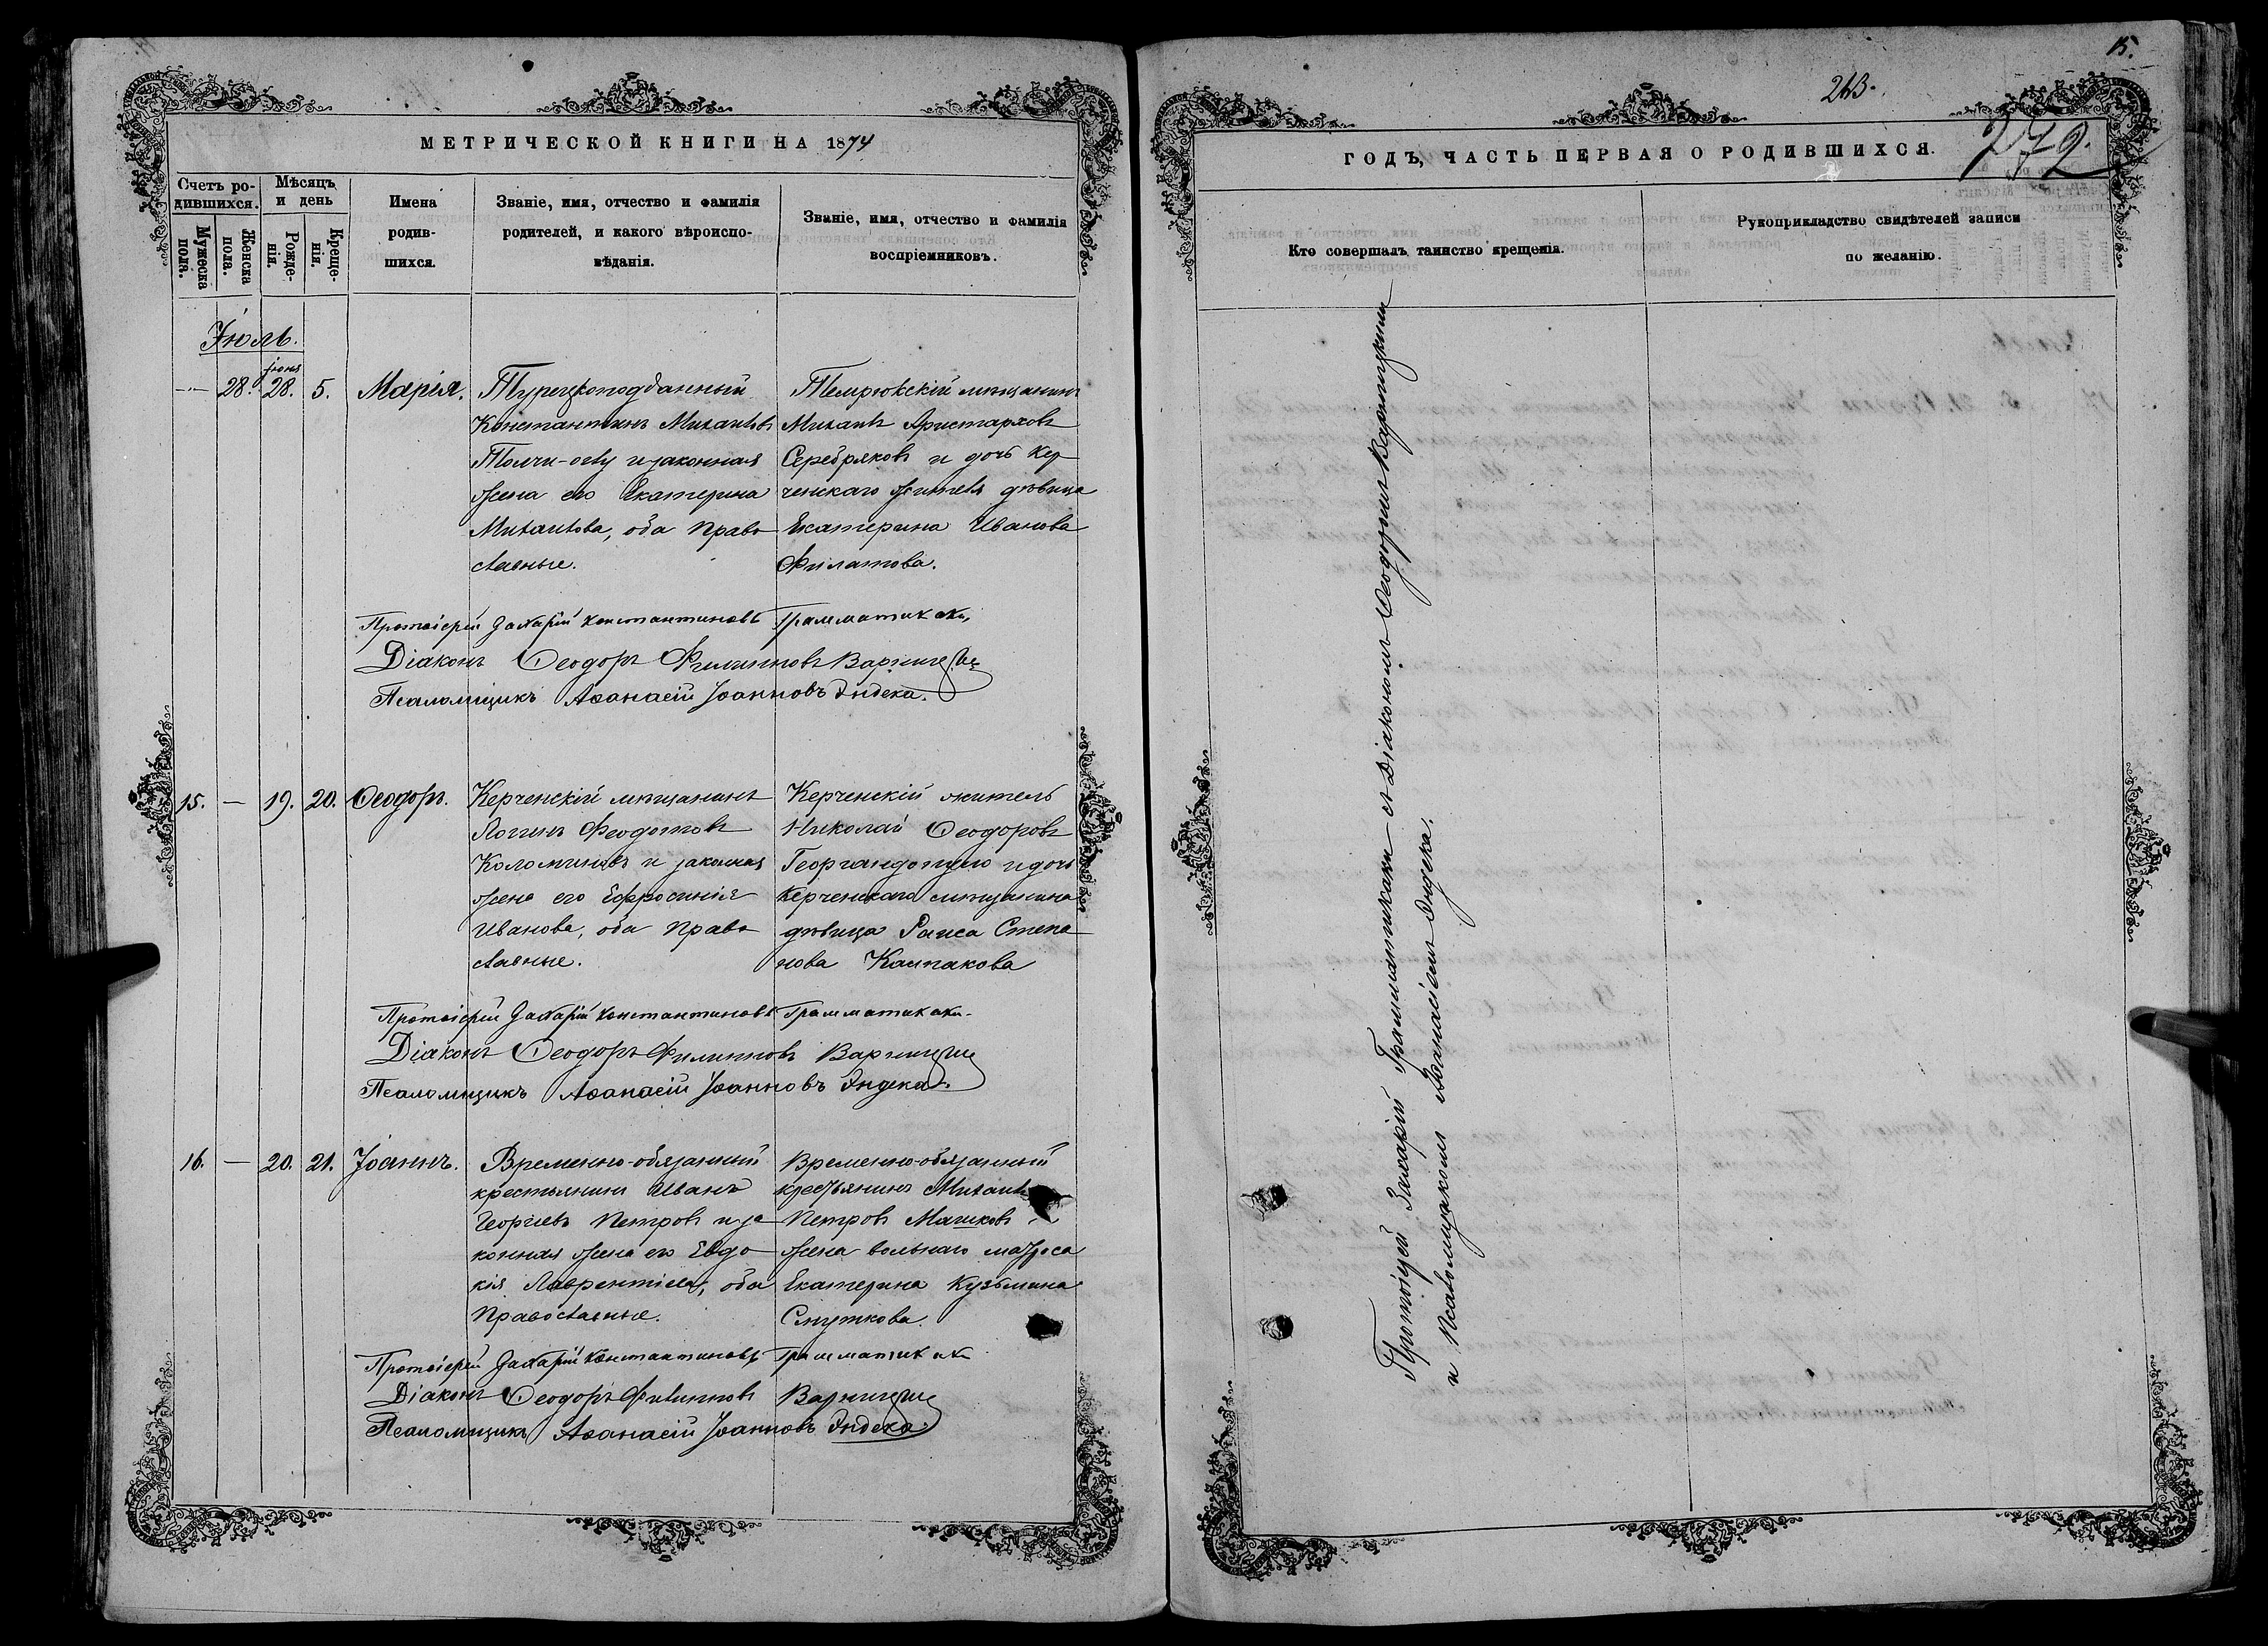 МЕТРИЧЕСКОЙ КНИГИ НА 1874
Счетъ ро-
дившихся.
Мужеска
пола.
Женска
пола.
Мѣсяцъ
и день
Рожде-
нія.
Креще-
нія.
Имена
родив-
шихся.
Званіе, имя, отчество и фамилія
родителей, и какого вѣроиспо-
вѣданія.
Званіе, имя, отчество и фамилія
воспріемниковъ.
Іюль.
— 28. іюня 28. 5. Марія.
Турецкоподданный
Константинъ Михаиловъ
и законная
жена его Екатерина
Михаилова, оба Право
славные.
Темрюкскій мѣщанинъ
Михаилъ Аристарховъ
Серебряковъ и дочь Кер
ченскаго жителя дѣвица
Екатерина Иванова
Филатова.
Протоіерей Захарій Константиновъ Грамматикаки.
Діаконъ Ѳеодоръ Филипповъ Варницкій
Псаломщикъ Аѳанасій Іоанновъ Эндека.
15. — 19. 20. Ѳеодоръ.
Керченскій мѣщанинъ
Логинъ Феодотовъ
Коломинъ и законная
жена его Ефросинія
Иванова, оба Право
славные.
Керченскій житель
Николай Ѳеодоровъ
Георгандопуло и дочь
Керченскаго мѣщанина
дѣвица Раиса Степа
нова Калпакова
Протоіерей Захарій Константиновъ Грамматикаки.
Діаконъ Ѳеодоръ Филипповъ Варницкій
Псаломщикъ Аѳанасій Іоанновъ Эндека.
16. — 20. 21. Іоаннъ.
Временно-обязанный
крестьянинъ Иванъ
Георгіевъ Петровъ и за
конная жена его Евдо
кія Лаврентіева, оба
Православные.
Временно-обязанный
крестьянинъ Михаилъ
Петровъ Машковъ и
жена вольнаго матроса
Екатерина Кузьмина
Смуткова.
Протоіерей Захарій Константиновъ Грамматикаки
Діаконъ Ѳеодоръ Филипповъ Варницкій
Псаломщикъ Аѳанасій Іоанновъ Эндека
15.
213.
272.
ГОДЪ, ЧАСТЬ ПЕРВАЯ О РОДИВШИХСЯ.
Кто совершалъ таинство крещенія.
Рукоприкладство свидѣтелей записи
по желанію.
Протоіерей Захарій Грамматикаки съ Діакономъ Ѳеодоромъ Варницкимъ
и Псаломщикомъ Аѳанасіемъ Эндека.